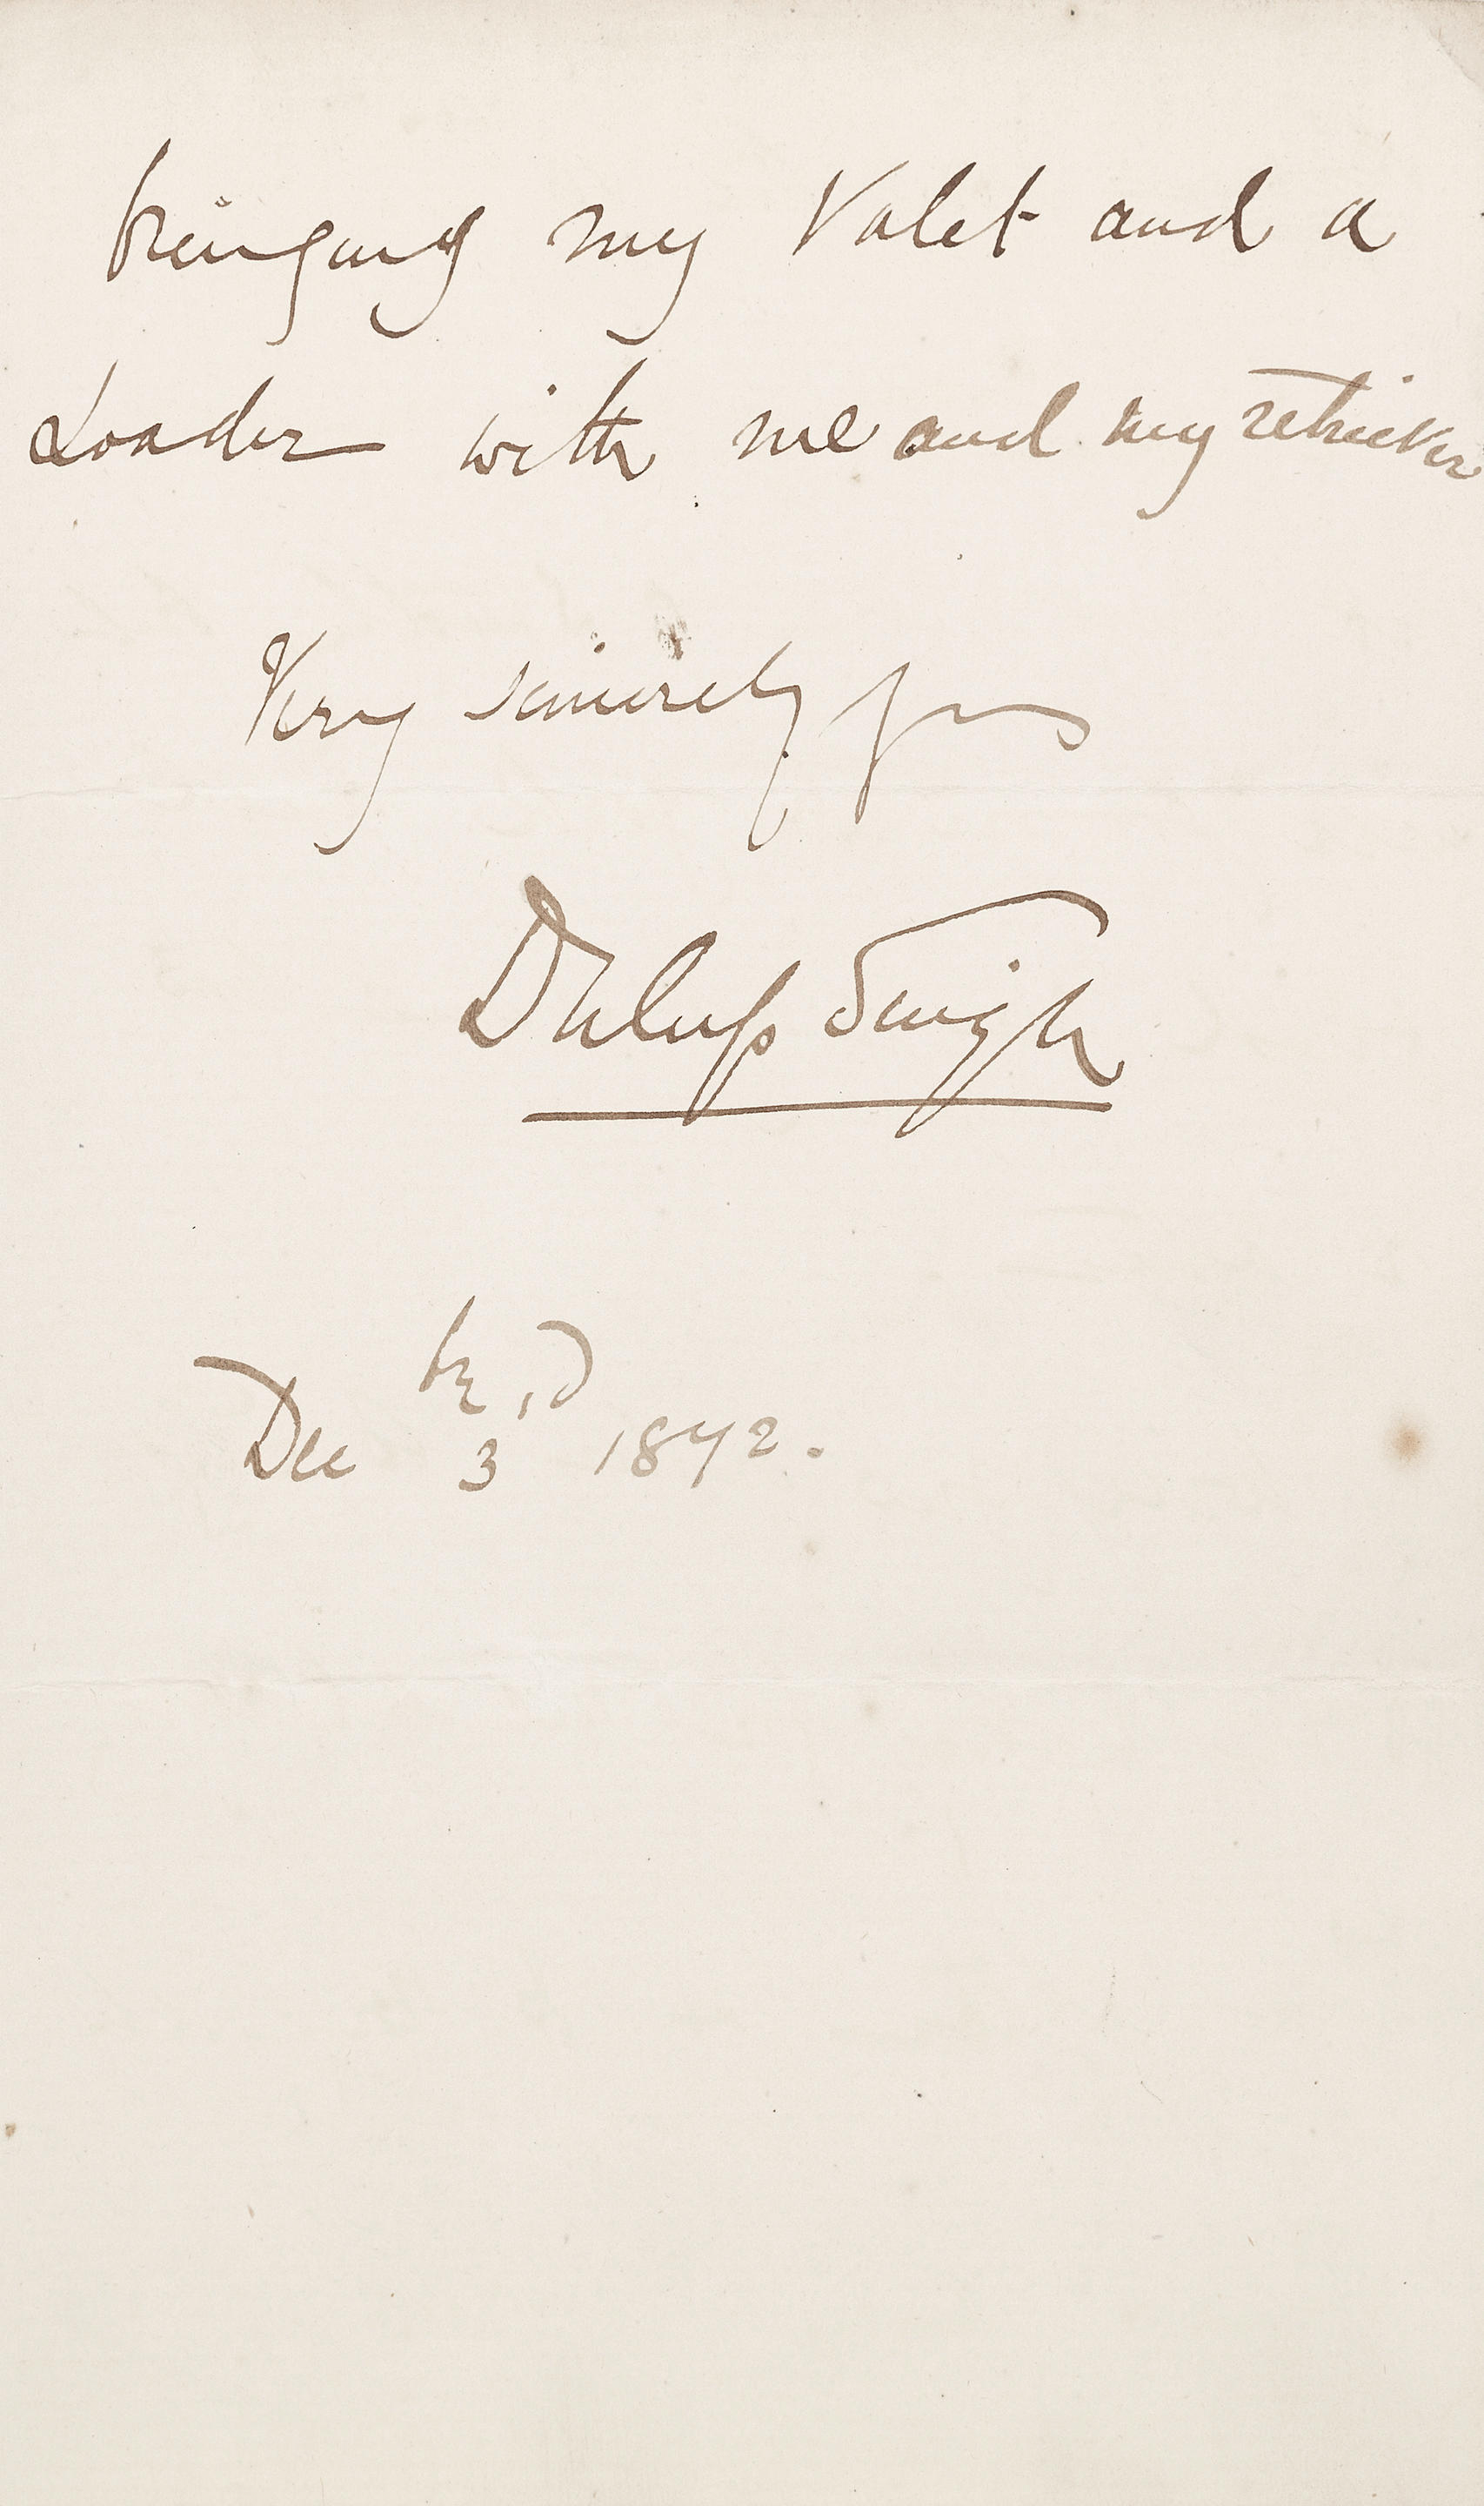 bringing my Valet and a
Loader with me and my retriever
Very sincerely yrs
Duleep Singh
Dec 3rd 1872.